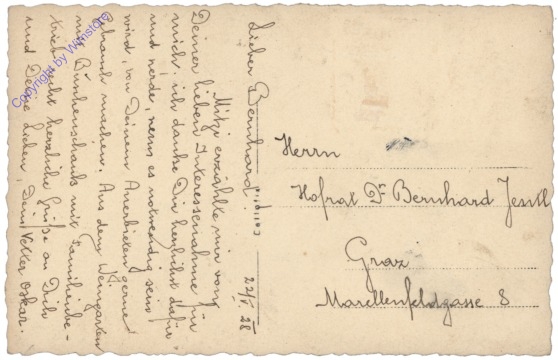 Lieber Bernhard!
22/V. 28
Mitzi erzählte mir vom
Deiner lieben Interessenahme für
mich; ich danke Dir herzlichst dafür
und werde, wenn es notwendig sein
wird, von Deinem Anerbieten gerne
Gebrauch machen. Aus dem Weingarten
mit Buschenschank mit Familienbe-
trieb herzliche Grüße an Dich
und Deine Lieben, Dein Vetter Oskar.
Herrn
Hofrat Dr Bernhard
Graz
Marellenfeldgasse 8
Copyright by Winstore